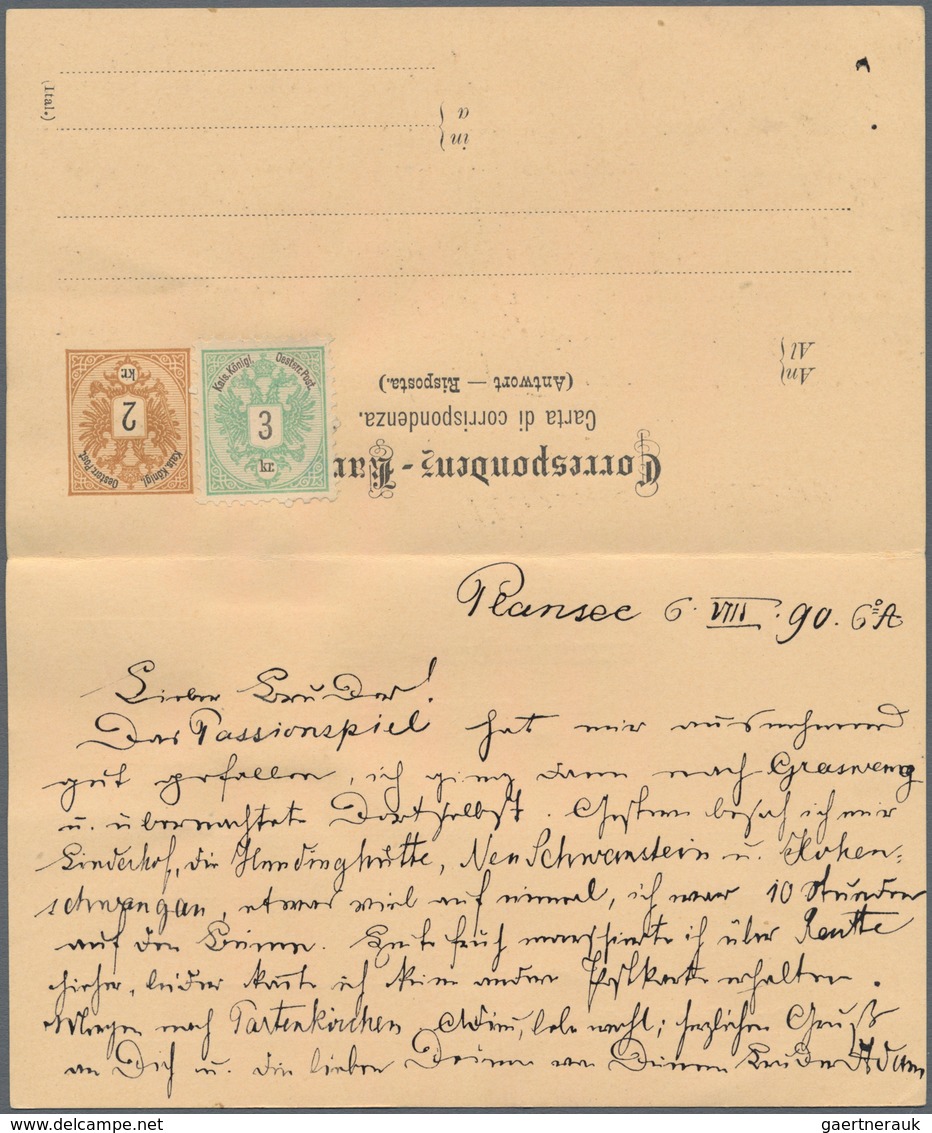 (Ital.)
in } a
An } Al
Correspondenz-Kar
Carta di corrispondenza.
(Antwort — Risposta.)
Kais. Königl. Oesterr. Post.
2
kr.
Kais. Königl. Oesterr. Post.
3
kr.
Plansee 6. VIII. 90. 6° A
Lieber Bruder!
Das Passionspiel hat mir ausnehmend
gut gefallen, ich ging dann nach Graswang
u. übernachtete dortselbst. Gestern besah ich mir
Linderhof, die Hundinghütte, Neu Schwanstein u. Hohen-
schwangau, etwas viel auf einmal, ich war 10 Stunden
auf den Beinen. Heute früh marschierte ich über Reutte
hieher, leider konnte ich keine andere Postkarte erhalten.
Morgen nach Partenkirchen. Adieu, lebe wohl; herzlichen Gruß
an Dich u. die lieben Deinen von Deinem Bruder Adam
gaertnerauk @ delcampe.net